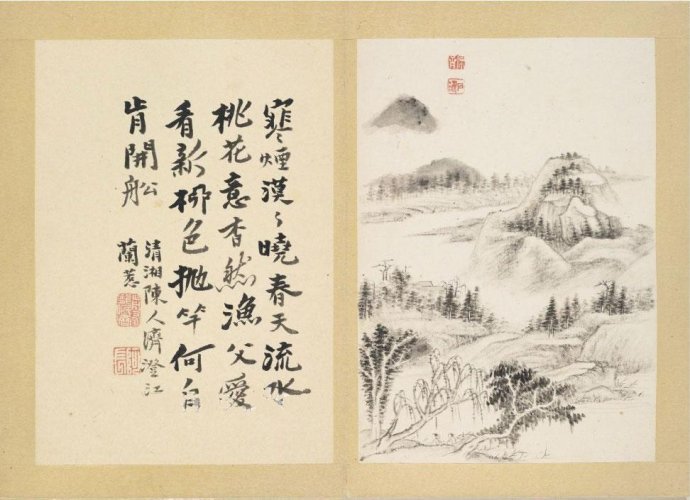 寒煙漠〻曉春天流水
桃花意杳然漁父愛
看新柳色拋竿何
肯開舩
清湘陳人濟澄江
蘭